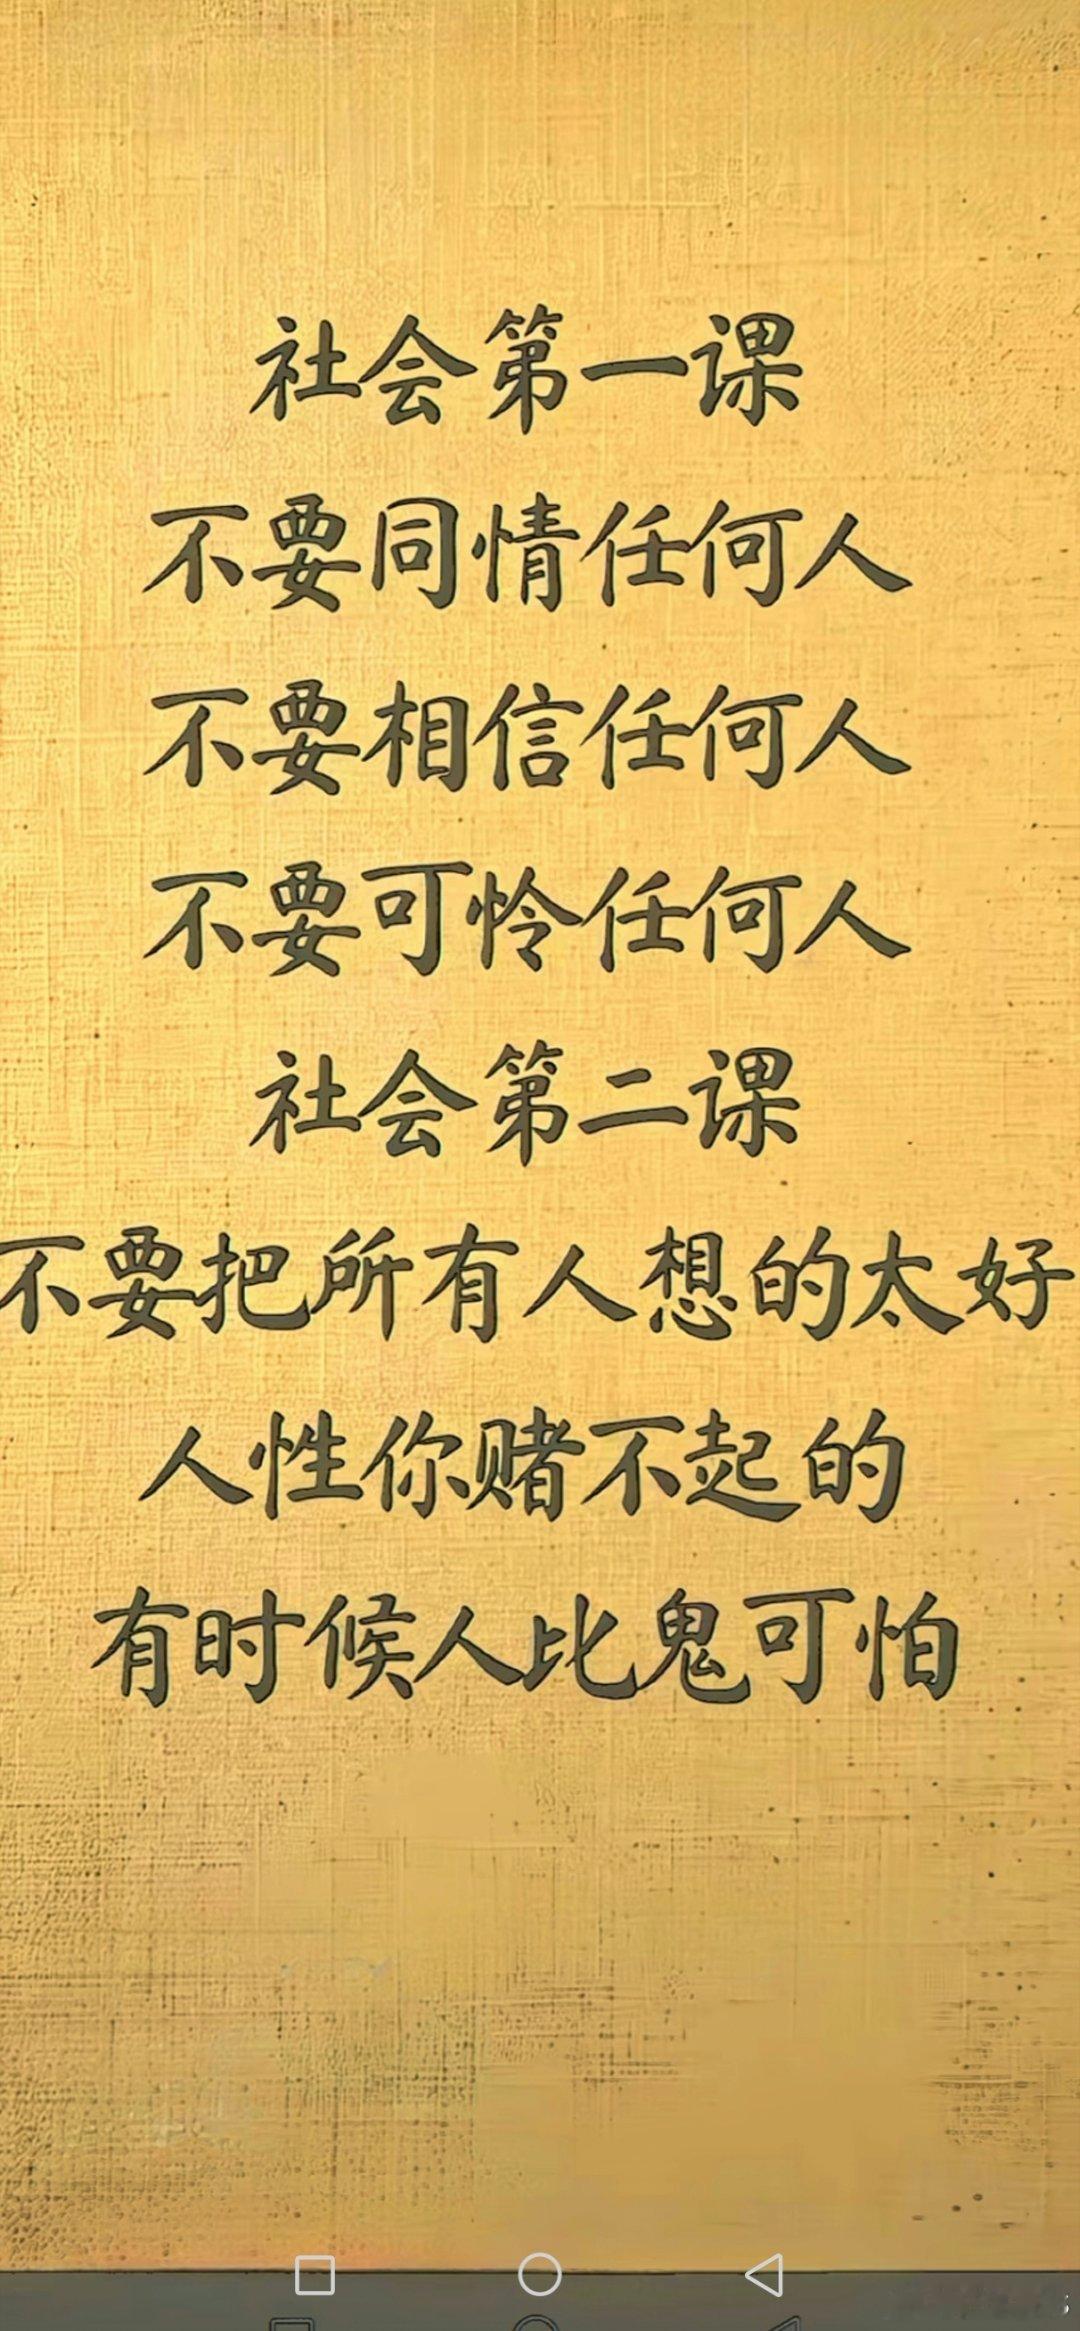 社会第一课
不要同情任何人
不要相信任何人
不要可怜任何人
社会第二课
不要把所有人想的太好
人性你赌不起的
有时候人比鬼可怕